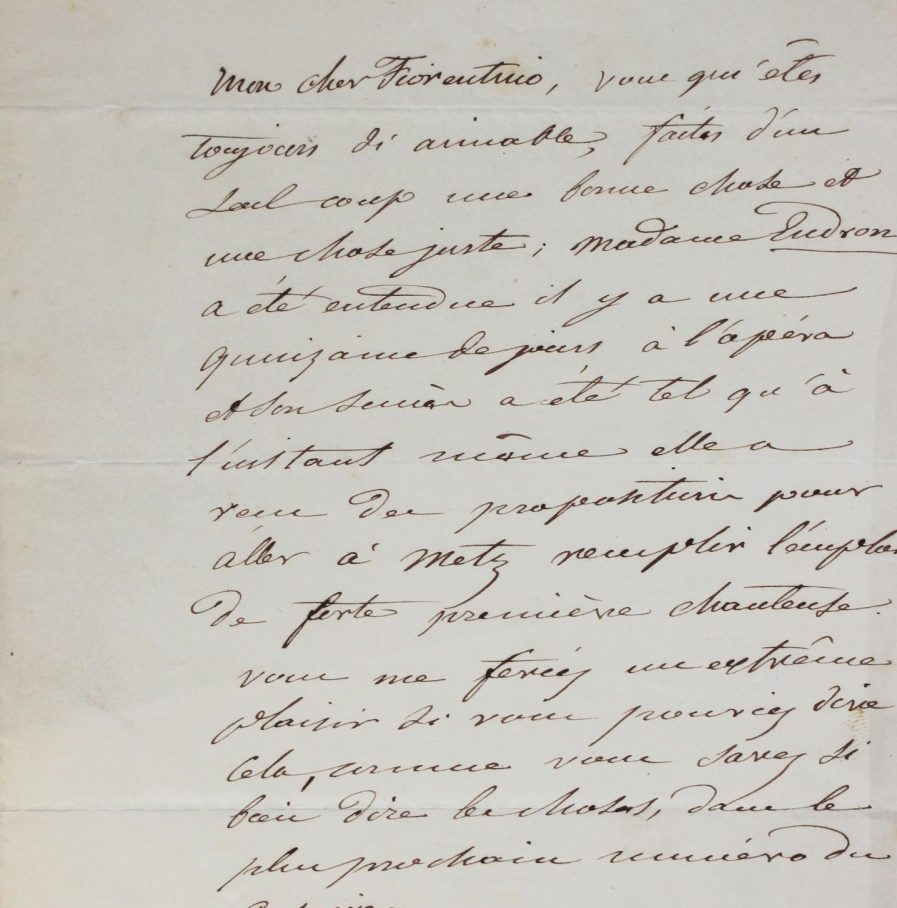 Mon cher Fiorentino, vous qui êtes
toujours si aimable, faites d'un
seul coup une bonne chose et
une chose juste; Madame Eudron
a été entendue il y a une
quinzaine de jours à l'opéra
et son succès a été tel qu'à
l'instant même elle a
reçu des propositions pour
aller à Metz remplir l'emploi
de forte première chanteuse.
vous me feriez un extrême
plaisir si vous pouviez dire
cela, comme vous savez si
bien dire les choses, dans le
plus prochain numéro du